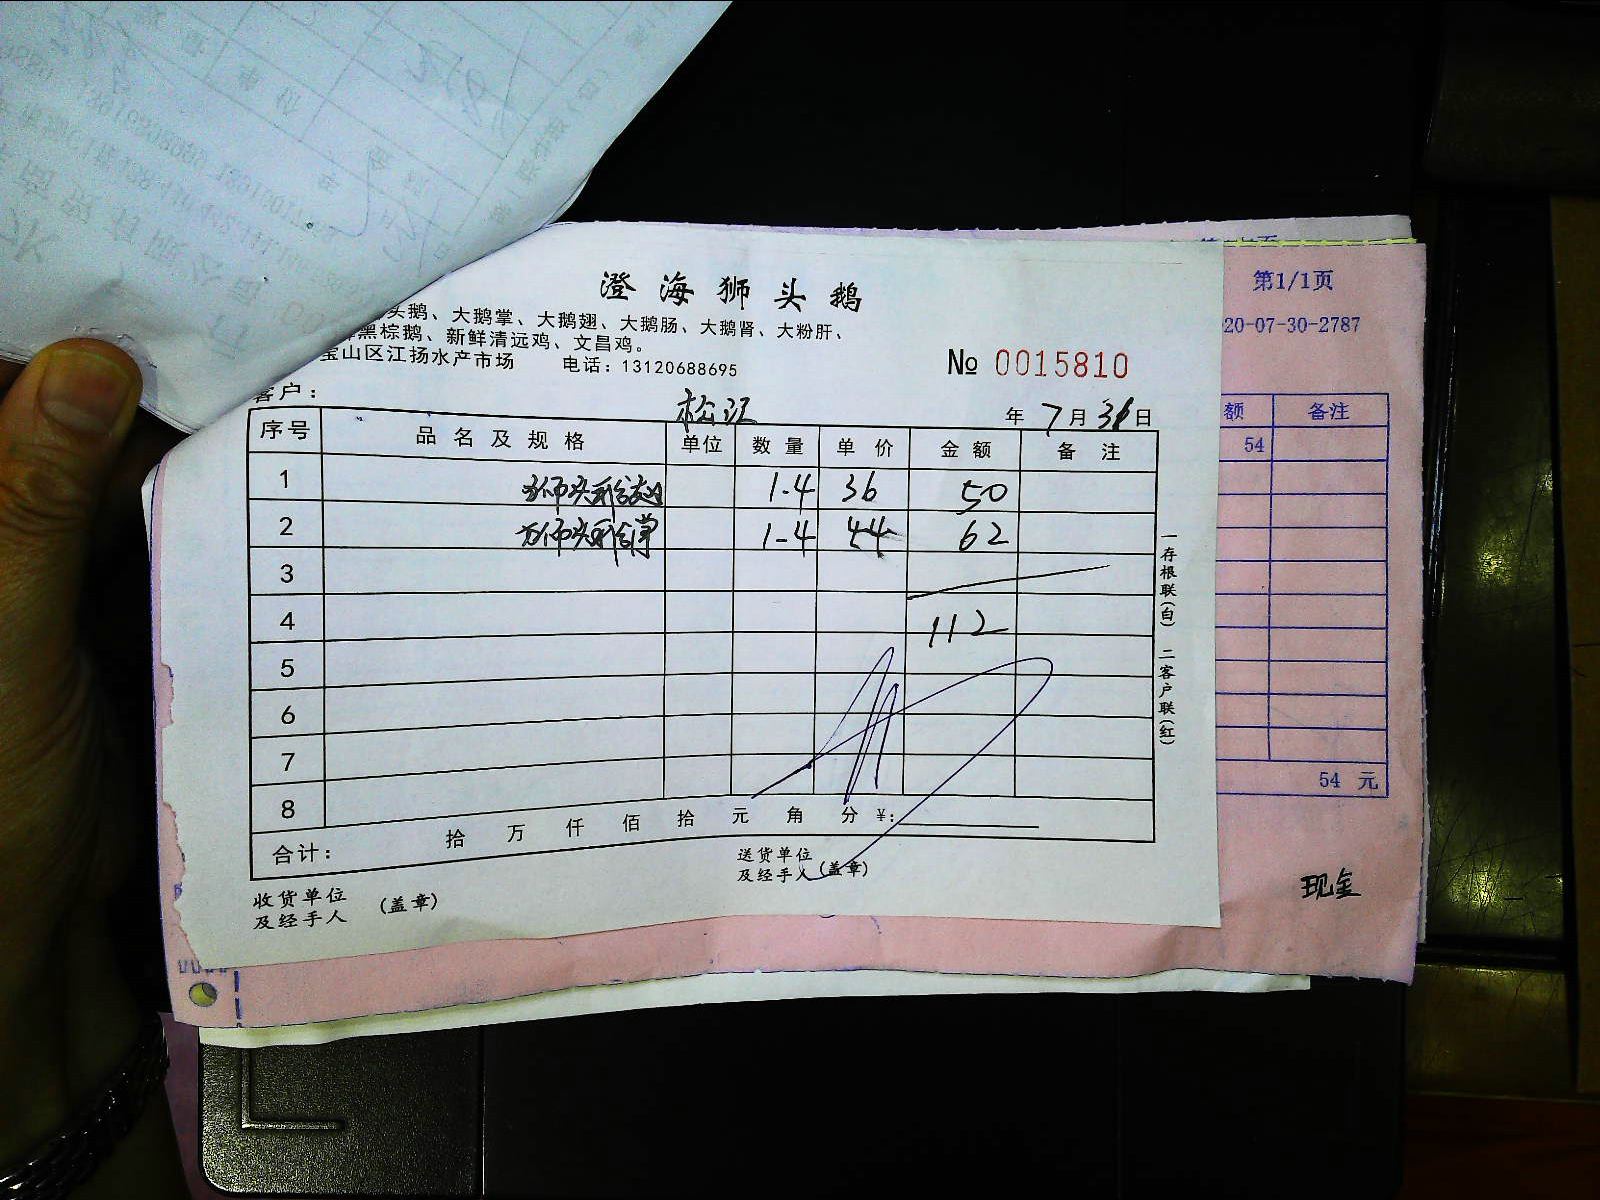 澄海狮头鹅
头鹅、大鹅掌、大鹅翅、大鹅肠、大鹅肾、大粉肝、
黑棕鹅、新鲜清远鸡、文昌鸡。
宝山区江扬水产市场 电话：13120688695
№ 0015810
客户： 松江 年 7 月 31 日
序号 品名及规格 单位 数量 单价 金额 备注
1 狮头鹅翅 1-4 36 50
2 狮头鹅掌 1-4 44 62
3
4 112
5
6
7
8
合计： 拾 万 仟 佰 拾 元 角 分 ¥:
收货单位
及经手人 (盖章)
送货单位
及经手人 (盖章)
一存根联(白) 二客户联(红)
第1/1页
20-07-30-2787
额 备注
54
54 元
现金